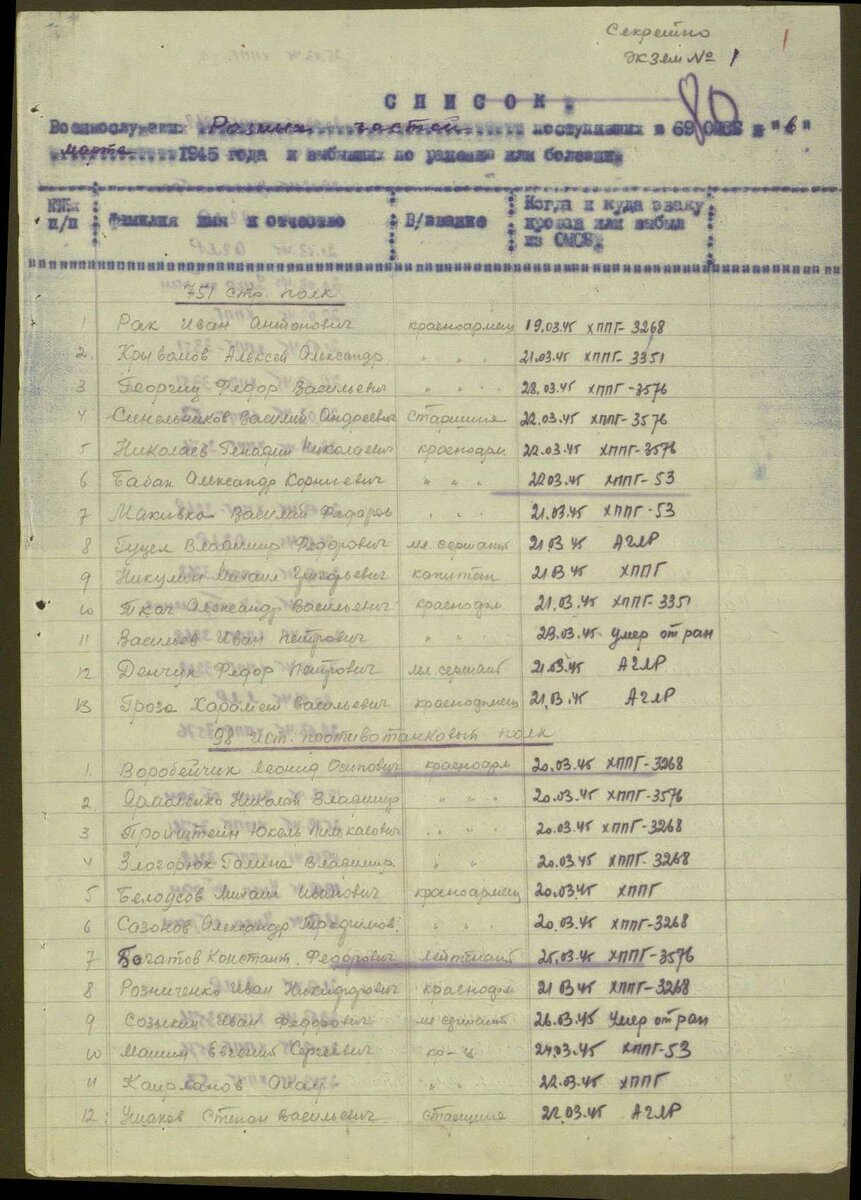 Секретно
Экзем № 1
80
СПИСОК.
Военнослужащих Разных частей поступивших в 69 ОМСБ в "в"
марте 1945 года и выбывших по ранению или болезни.
№№ п/п Фамилия имя и отчество В/звание Когда и куда эваку
ирован или выбыл
из ОМСБ.
751 стр. полк
1 Рак Иван Антонович красноармец 19.03.45 ХППГ-3268
2. Алексей Александр " " " 21.03.45 ХППГ-3351
3 Федор Васильевич " " " 28.03.45 ХППГ-3576
4 Синельников Василий Андреевич Старшина 22.03.45 ХППГ-3576
5 Николаев Генадий Николаевич красноарм 22.03.45 ХППГ-3576
6 Бабак Александр Корниевич " " " 22.03.45 ХППГ-53
7 Василий Федоров " " 21.03.45 ХППГ-53
8 Гуцел Владимир Федорович мл. сержант 21.03.45 АГЛР
9 Никулин Михаил Григорьевич капитан 21.03 45 ХППГ
10 Ткач Александр Васильевич красноарм 21.03.45 ХППГ-3351
11 Васильев Иван Петрович " " " 23.03.45 умер от ран
12 Денчук Федор Петрович мл. сержант 21.03.45 АГЛР
13 Гроза Васильевич красноармец 21.03.45 АГЛР
98 ист. противотанковый полк
1. Воробейчик Леонид Осипович красноарм 20.03.45 ХППГ-3268
2. Ярмоленко Николай Владимир " " " 20.03.45 ХППГ-3576
3 20.03.45 ХППГ-3268
4 Галина Владимир. " " 20.03.45 ХППГ-3268
5 Белоусов Михаил Иванович красноармец 20.03.45 ХППГ
6 Сазонов Александр " " 20.03.45 ХППГ-3268
7 Богатов Констант. Федорович лейтенант 25.03.45 ХППГ-3576
8 Розниченко Иван Никифорович красноарм 21 03.45 ХППГ-3268
9 Созыкин Иван Федорович мл сержант 26.03.45 Умер от ран
10 Машин Евгений Сергеевич кр-ц 24.03.45 ХППГ-53
11 " " 22.03.45 ХППГ
12. Ушаков Степан Васильевич старшина 22.03.45 АГЛР